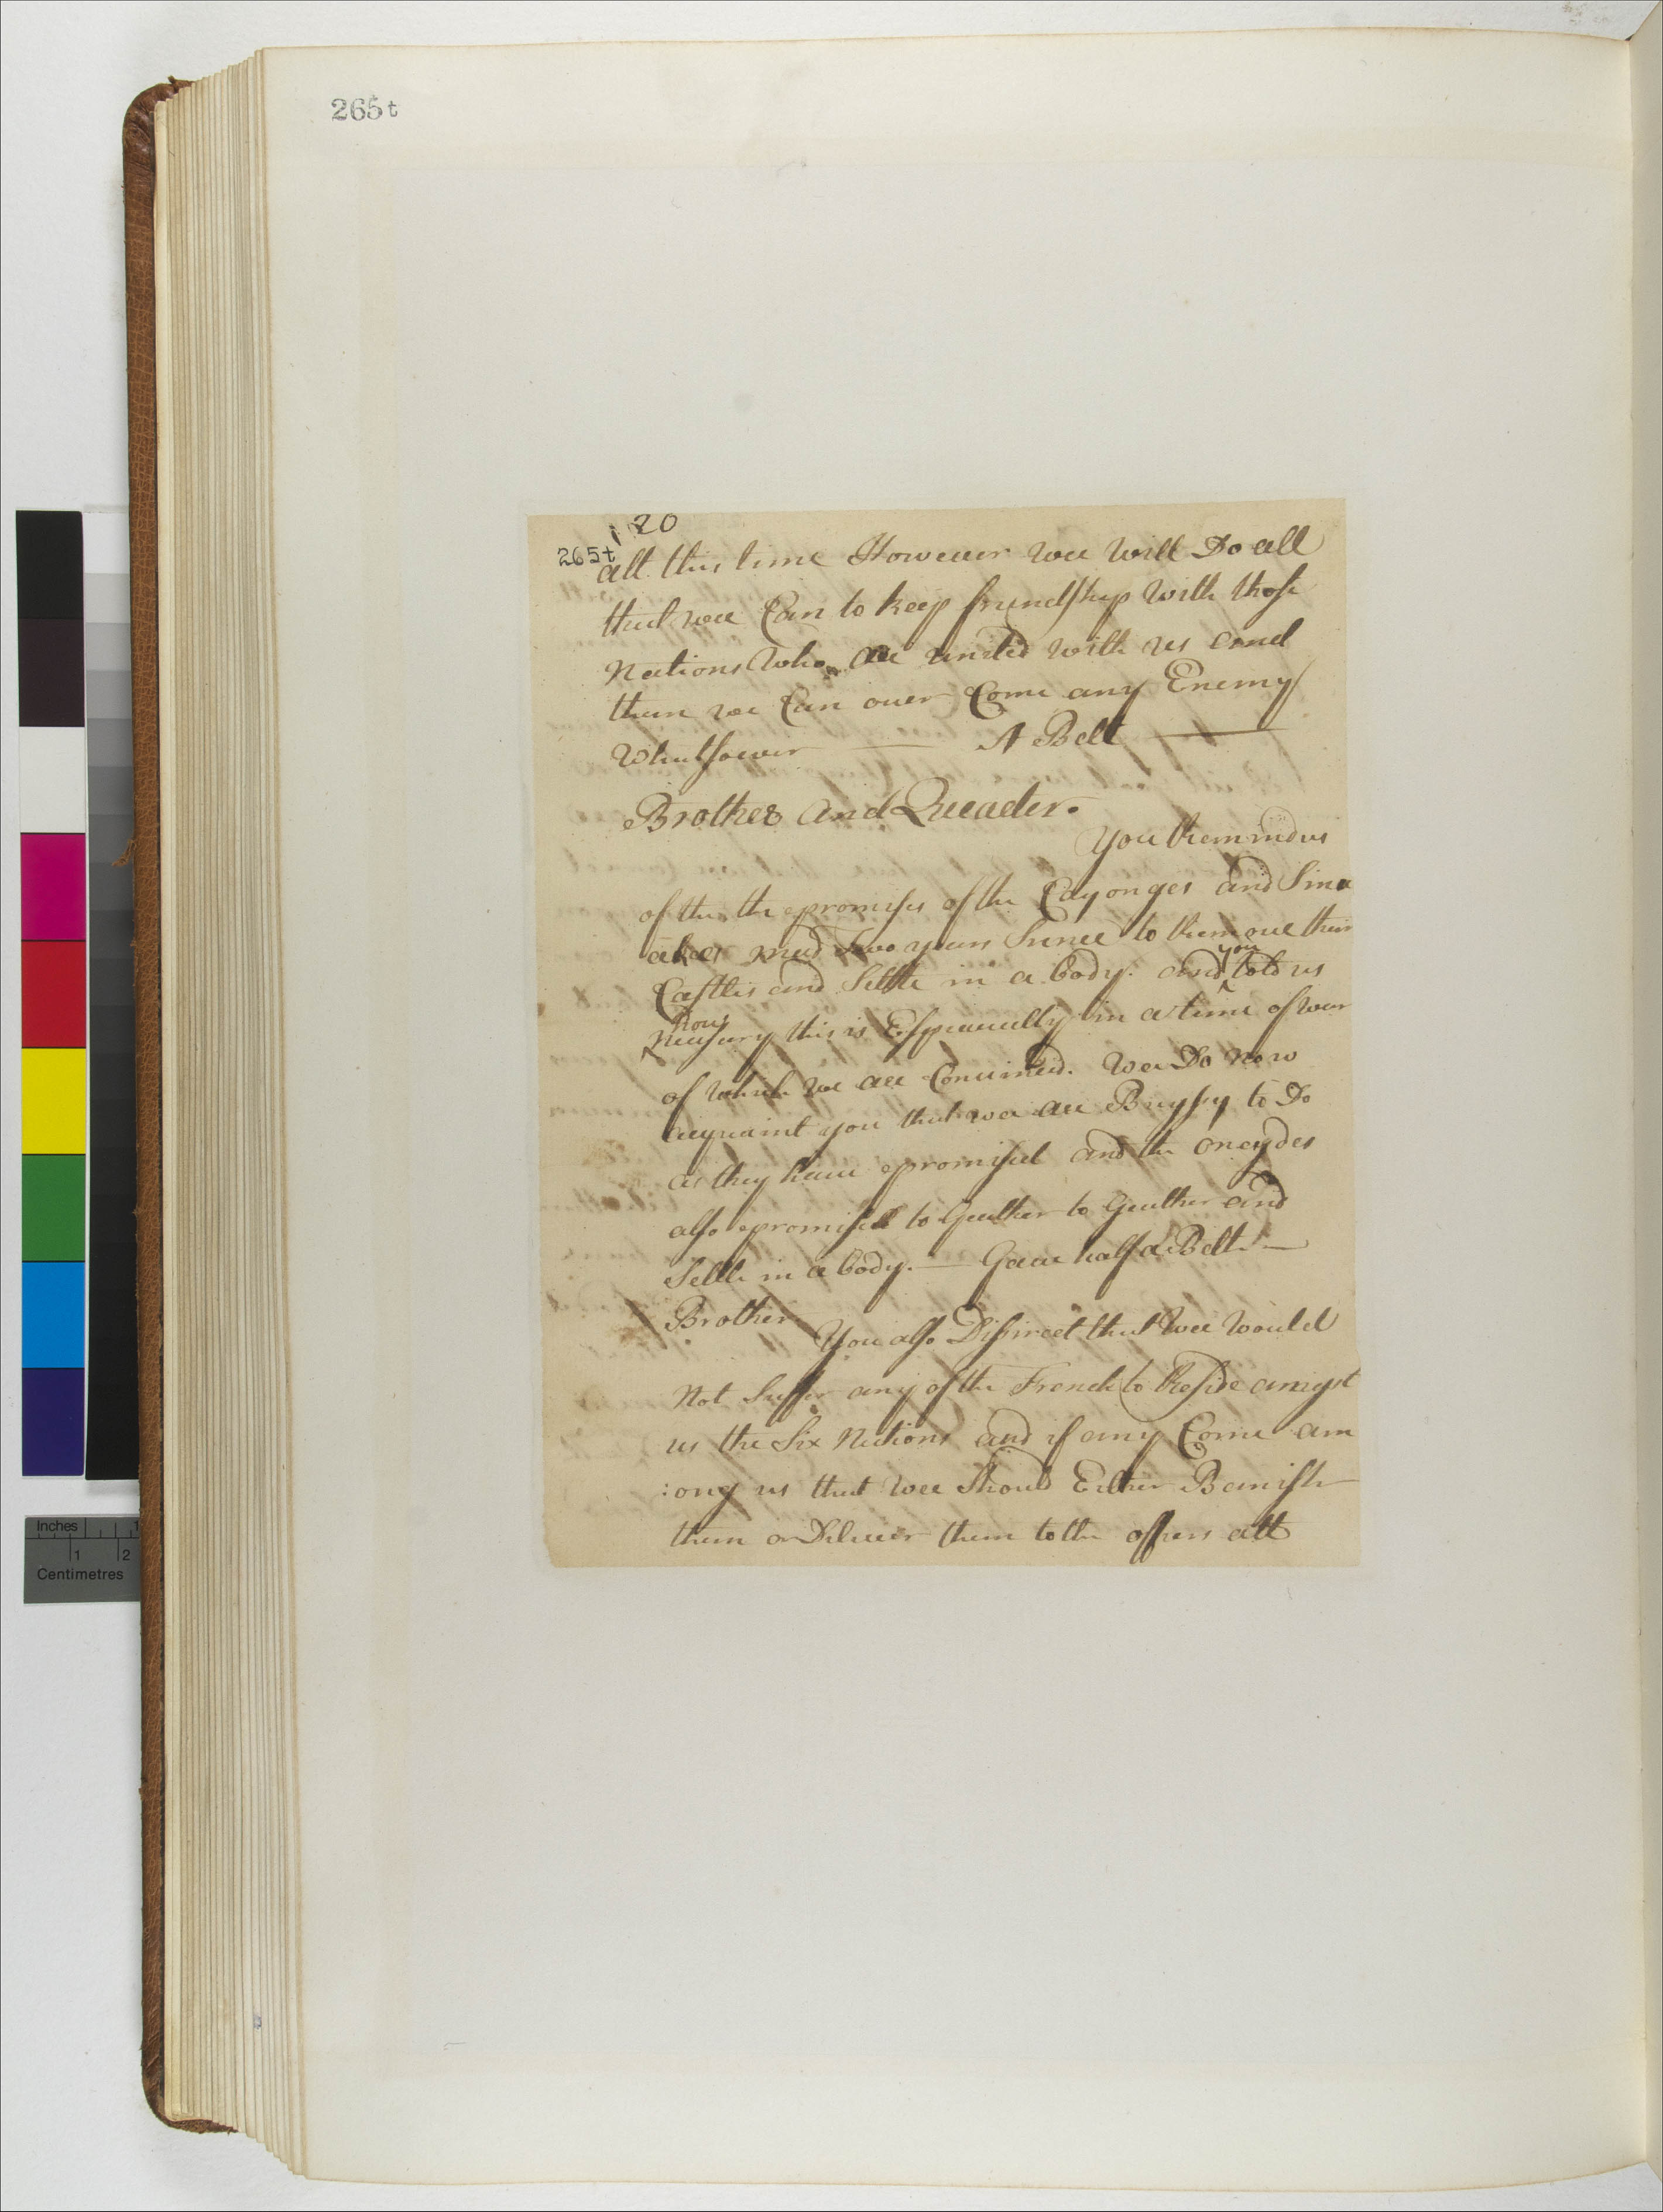 265t
20
265t
all this time However wee will Do all
that wee Can to keep frindship with those
Nations Who are united with us and
then we Can over Come any Enemy
Whatsoever — A Belt —
Brother and Queader.
You Remind us
of the the promises of the Cayonges and Sina
akes mad two years Since to Remove their
Castles and Settle in a body. and you told us
how
Necisary this is Espicucully in a time of war
of which we are Convinced. Wee Do now
acquaint you that wee are Buyssy to Do
as they have promised and the oneydes
also promised to Geather to Geather and
Settle in a body. — Gave half a Belt —
Brother
You also Disireet that Wee Would
Not Suffer any of the French to Reside amgst
us the Six Nations and if any Come am
:ong us that wee Should Either Banish
them or Deliver them to the offisers att
Inches 1
1 2
Centimetres